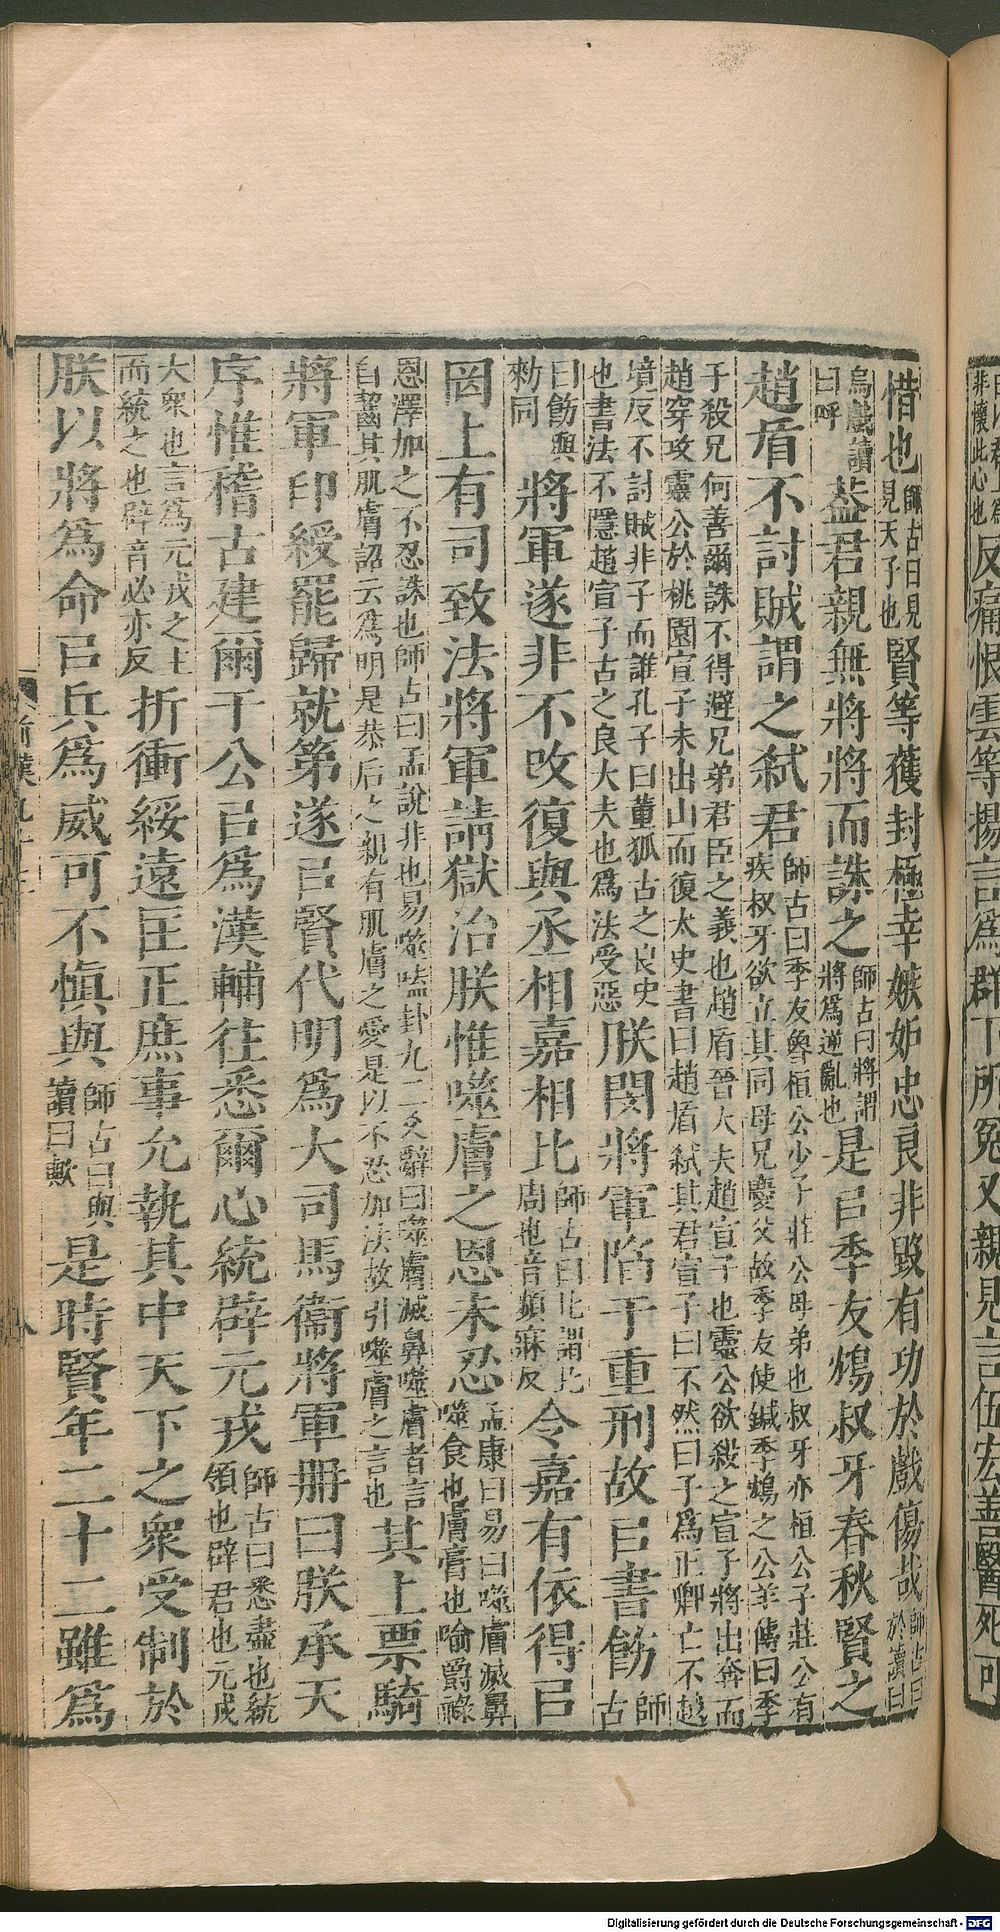 非懷此心也反痛恨雲等揚言爲群下所冤又親見言伍宏善醫死可
惜也師古曰見見天子也賢等獲封極幸嫉妒忠良非毀有功於戲傷哉師古曰於讀曰
烏戲讀曰呼蓋君親無將將而誅之師古曰將謂將爲逆亂也是㠯季友鴆叔牙春秋賢之
趙盾不討賊謂之弑君師古曰季友魯桓公少子莊公母弟也叔牙亦桓公子莊公有疾叔牙欲立其同母兄慶父故季友使鍼季鴆之公羊傳曰季
子殺兄何善爾誅不得避兄弟君臣之義也趙盾晉大夫趙宣子也靈公欲殺之宣子將出奔而趙穿攻靈公於桃園宣子未出山而復太史書曰趙盾弑其君宣子曰不然曰子爲正卿亡不越
境反不討賊非子而誰孔子曰董狐古之良史也書法不隱趙宣子古之良大夫也爲法受惡朕閔將軍陷于重刑故㠯書飭師古
曰飭與勑同將軍遂非不改復與丞相嘉相比師古曰比謂比周也音頻寐反令嘉有依得㠯
罔上有司致法將軍請獄治朕惟噬膚之恩未忍孟康曰易曰噬膚滅鼻噬食也膚膏也喻爵祿
恩澤加之不忍誅也師古曰孟說非也易噬嗑卦九二爻辭曰噬膚滅鼻噬膚者言自齧其肌膚詔云爲明是恭后之親有肌膚之愛是以不忍加法故引噬膚之言也其上票騎
將軍印綬罷歸就第遂㠯賢代明爲大司馬衞將軍册曰朕承天
序惟稽古建爾于公㠯爲漢輔往悉爾心統辟元戎師古曰悉盡也統領也辟君也元戎
大衆也言爲元戎之主而統之也辟音必亦反折衝綏遠匡正庶事允執其中天下之衆受制於
朕以將爲命㠯兵爲威可不慎與師古曰與讀曰歟是時賢年二十二雖爲
Digitalisierung gefördert durch die Deutsche Forschungsgemeinschaft - DFG